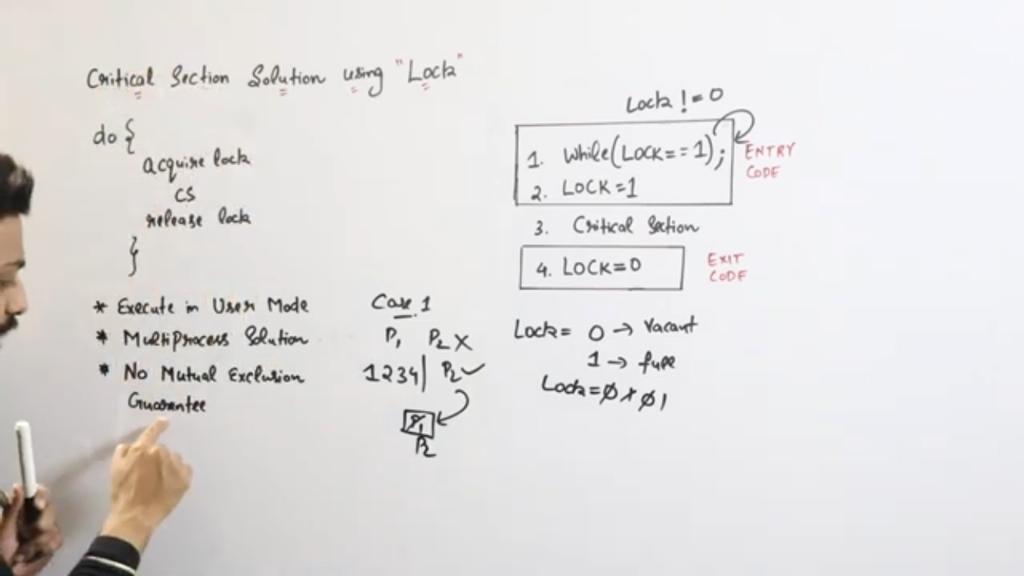 Critical Section Solution using "Lock"
do {
acquire lock
CS
release lock
}
* Execute in User Mode
* MultiProcess Solution
* No Mutual Exclusion
Guarantee
Case 1
P1 P2 X
1234| P2 ✓
P1
P2
Lock != 0
1. While(LOCK==1);
2. LOCK=1
ENTRY
CODE
3. Critical Section
4. LOCK=0
EXIT
CODE
Lock= 0 → Vacant
1 → full
Lock=0 1 0 1